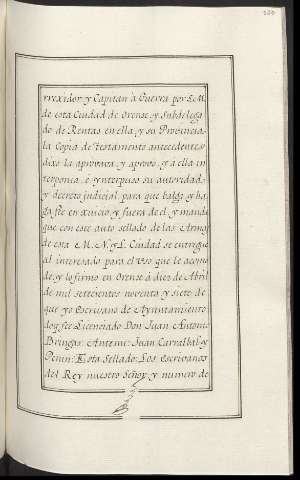 rrexidor y Capitan à Guerra por S.M.
de esta Ciudad de Orense y Subdelega
do de Rentas en ella, y su Provincia
la Copia de testamento antecedente
dixo la aprovava y aprovó, y a ella in
terponia è ynterpuso su autoridad
y decreto judicial para que balga y ha
ga fee en xuicio y fuera de el y mandó
que con este auto sellado de las Armas
de esta M. N. y L. Ciudad se entrigue
al interesado para el vso que le acomo
de, y lo firmo en Orense á diez de Abril
de mil setecientos noventa y siete de
que yo Escrivano de Ayuntamiento
doy fee Licenciado Don Juan Antonio
Bringas: Anteme: Juan Carralbal y
Penin: Esta Sellado: Los Escrivanos
del Rey nuestro Señor, y numero de